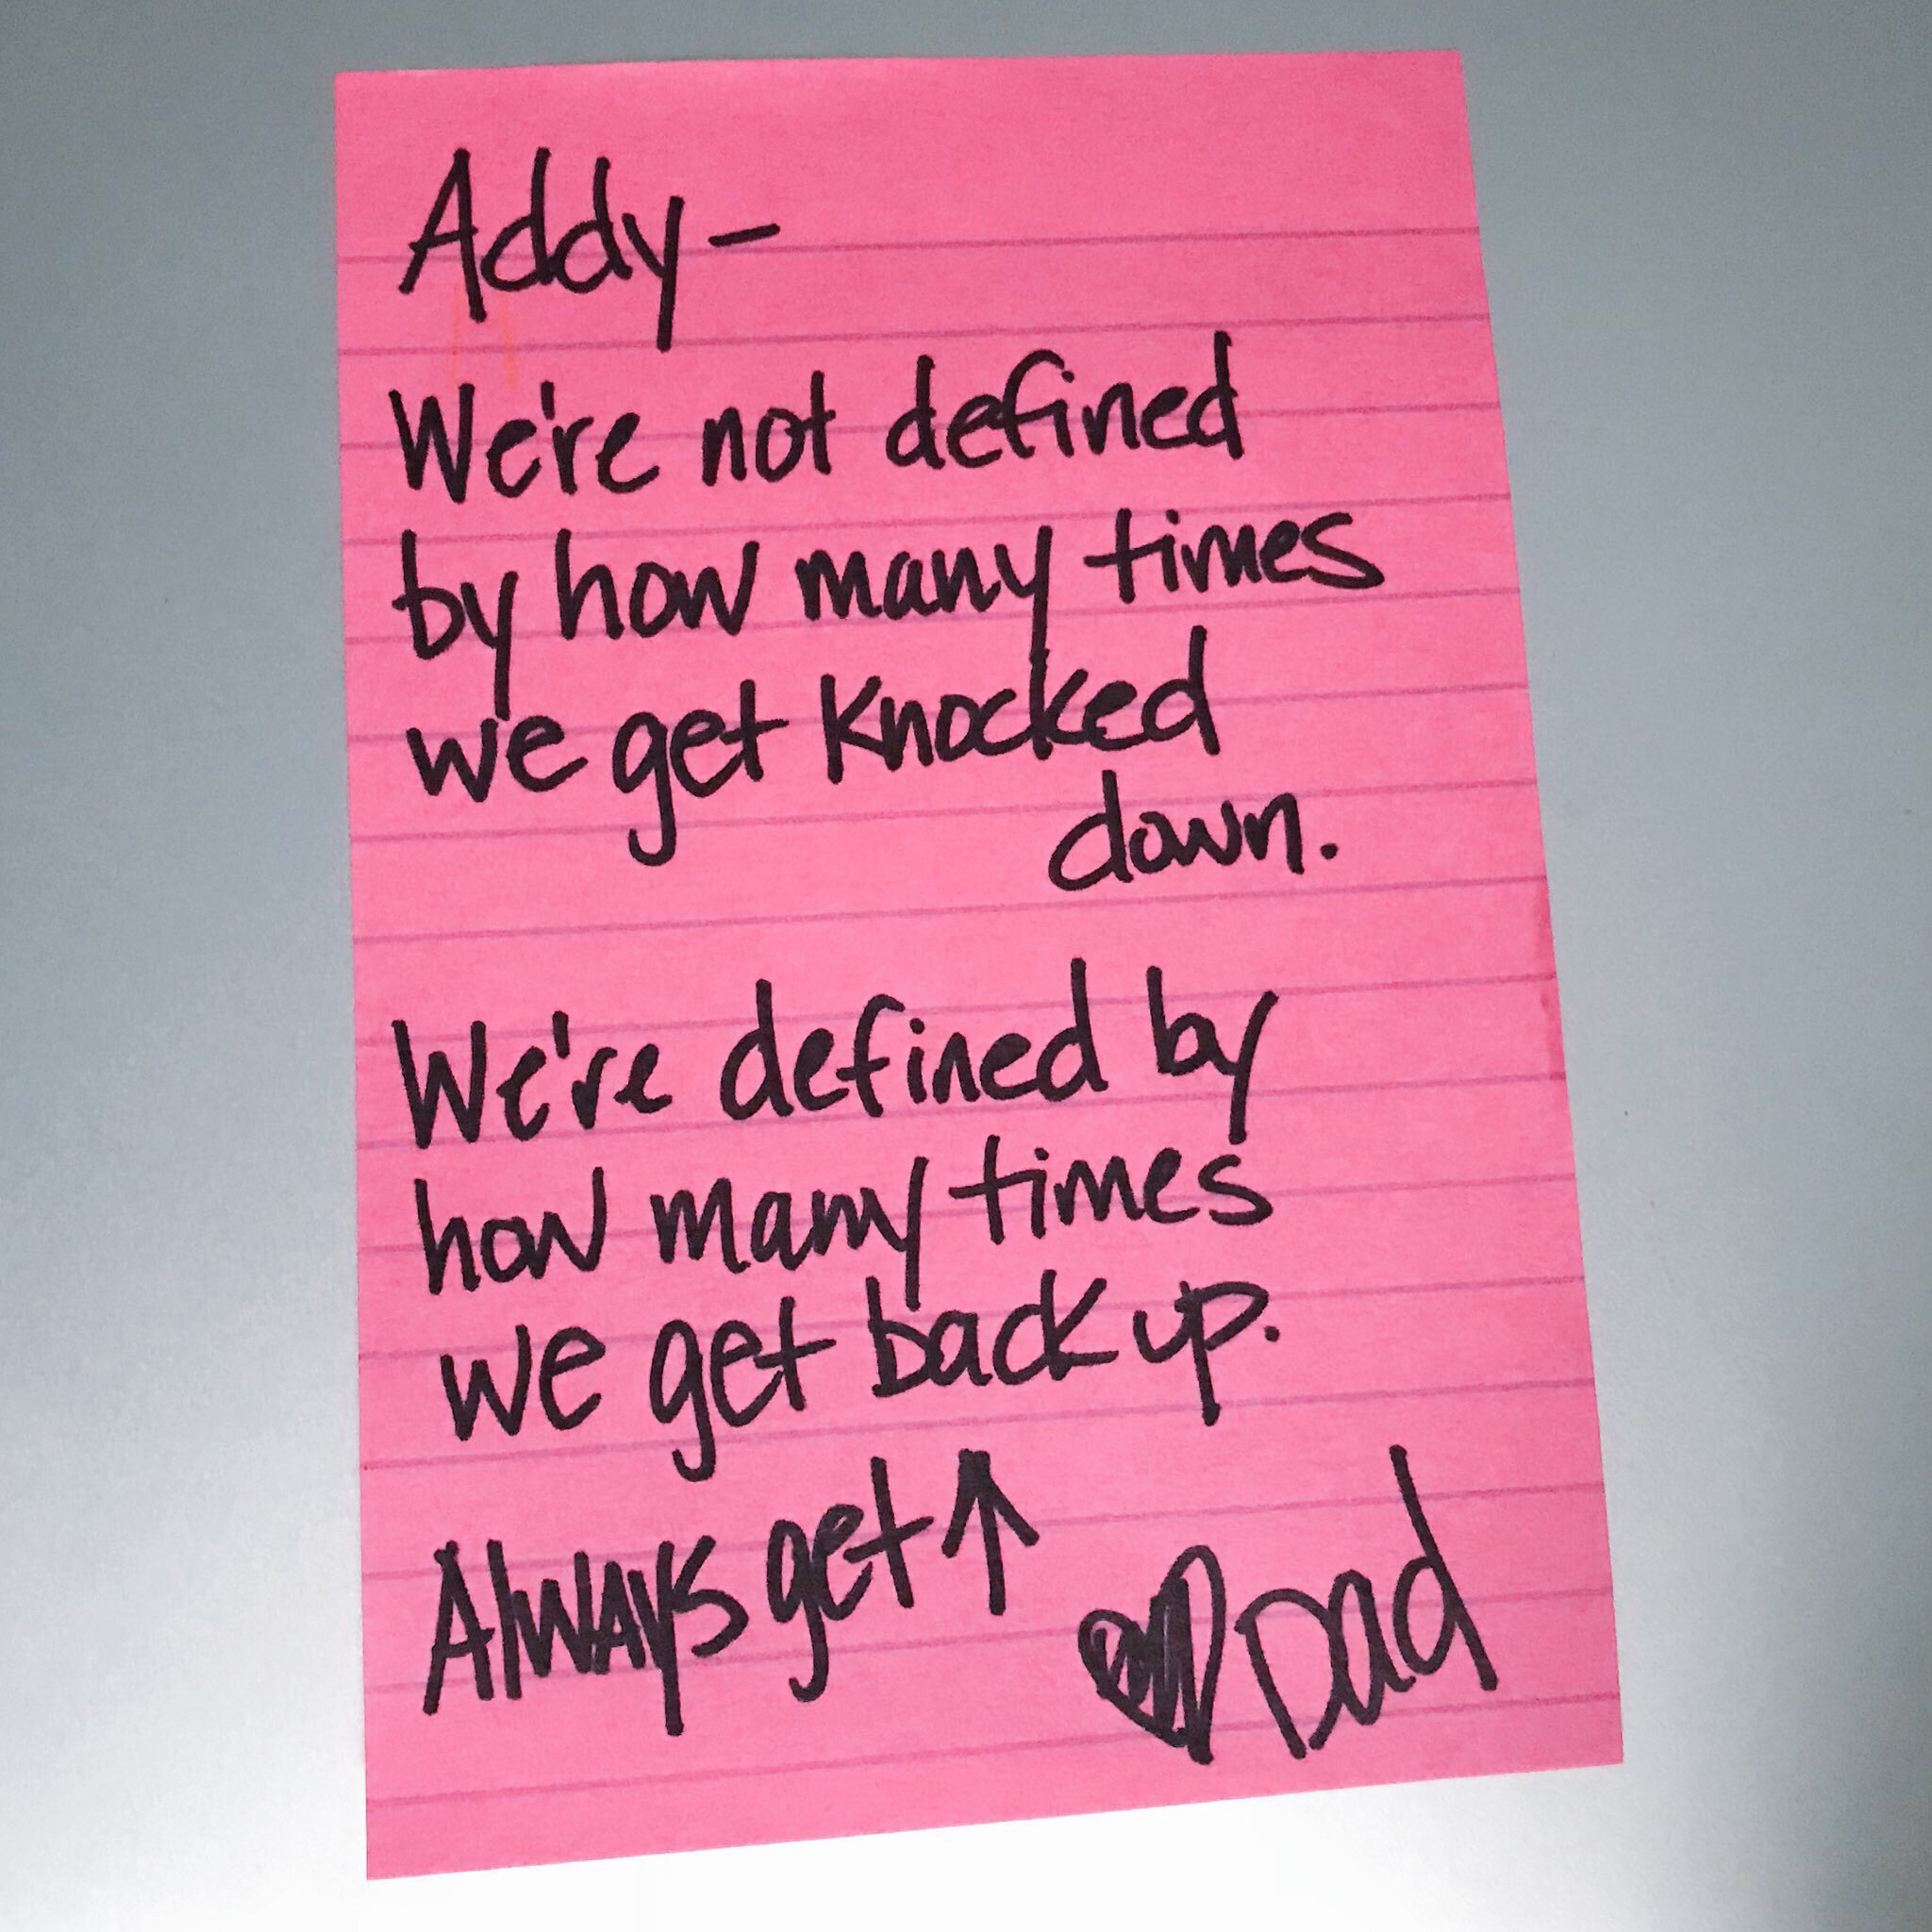 Addy-
We're not defined
by how many times
we get knocked
down.
We're defined by
how many times
we get back up.
Always get ↑
♥ Dad